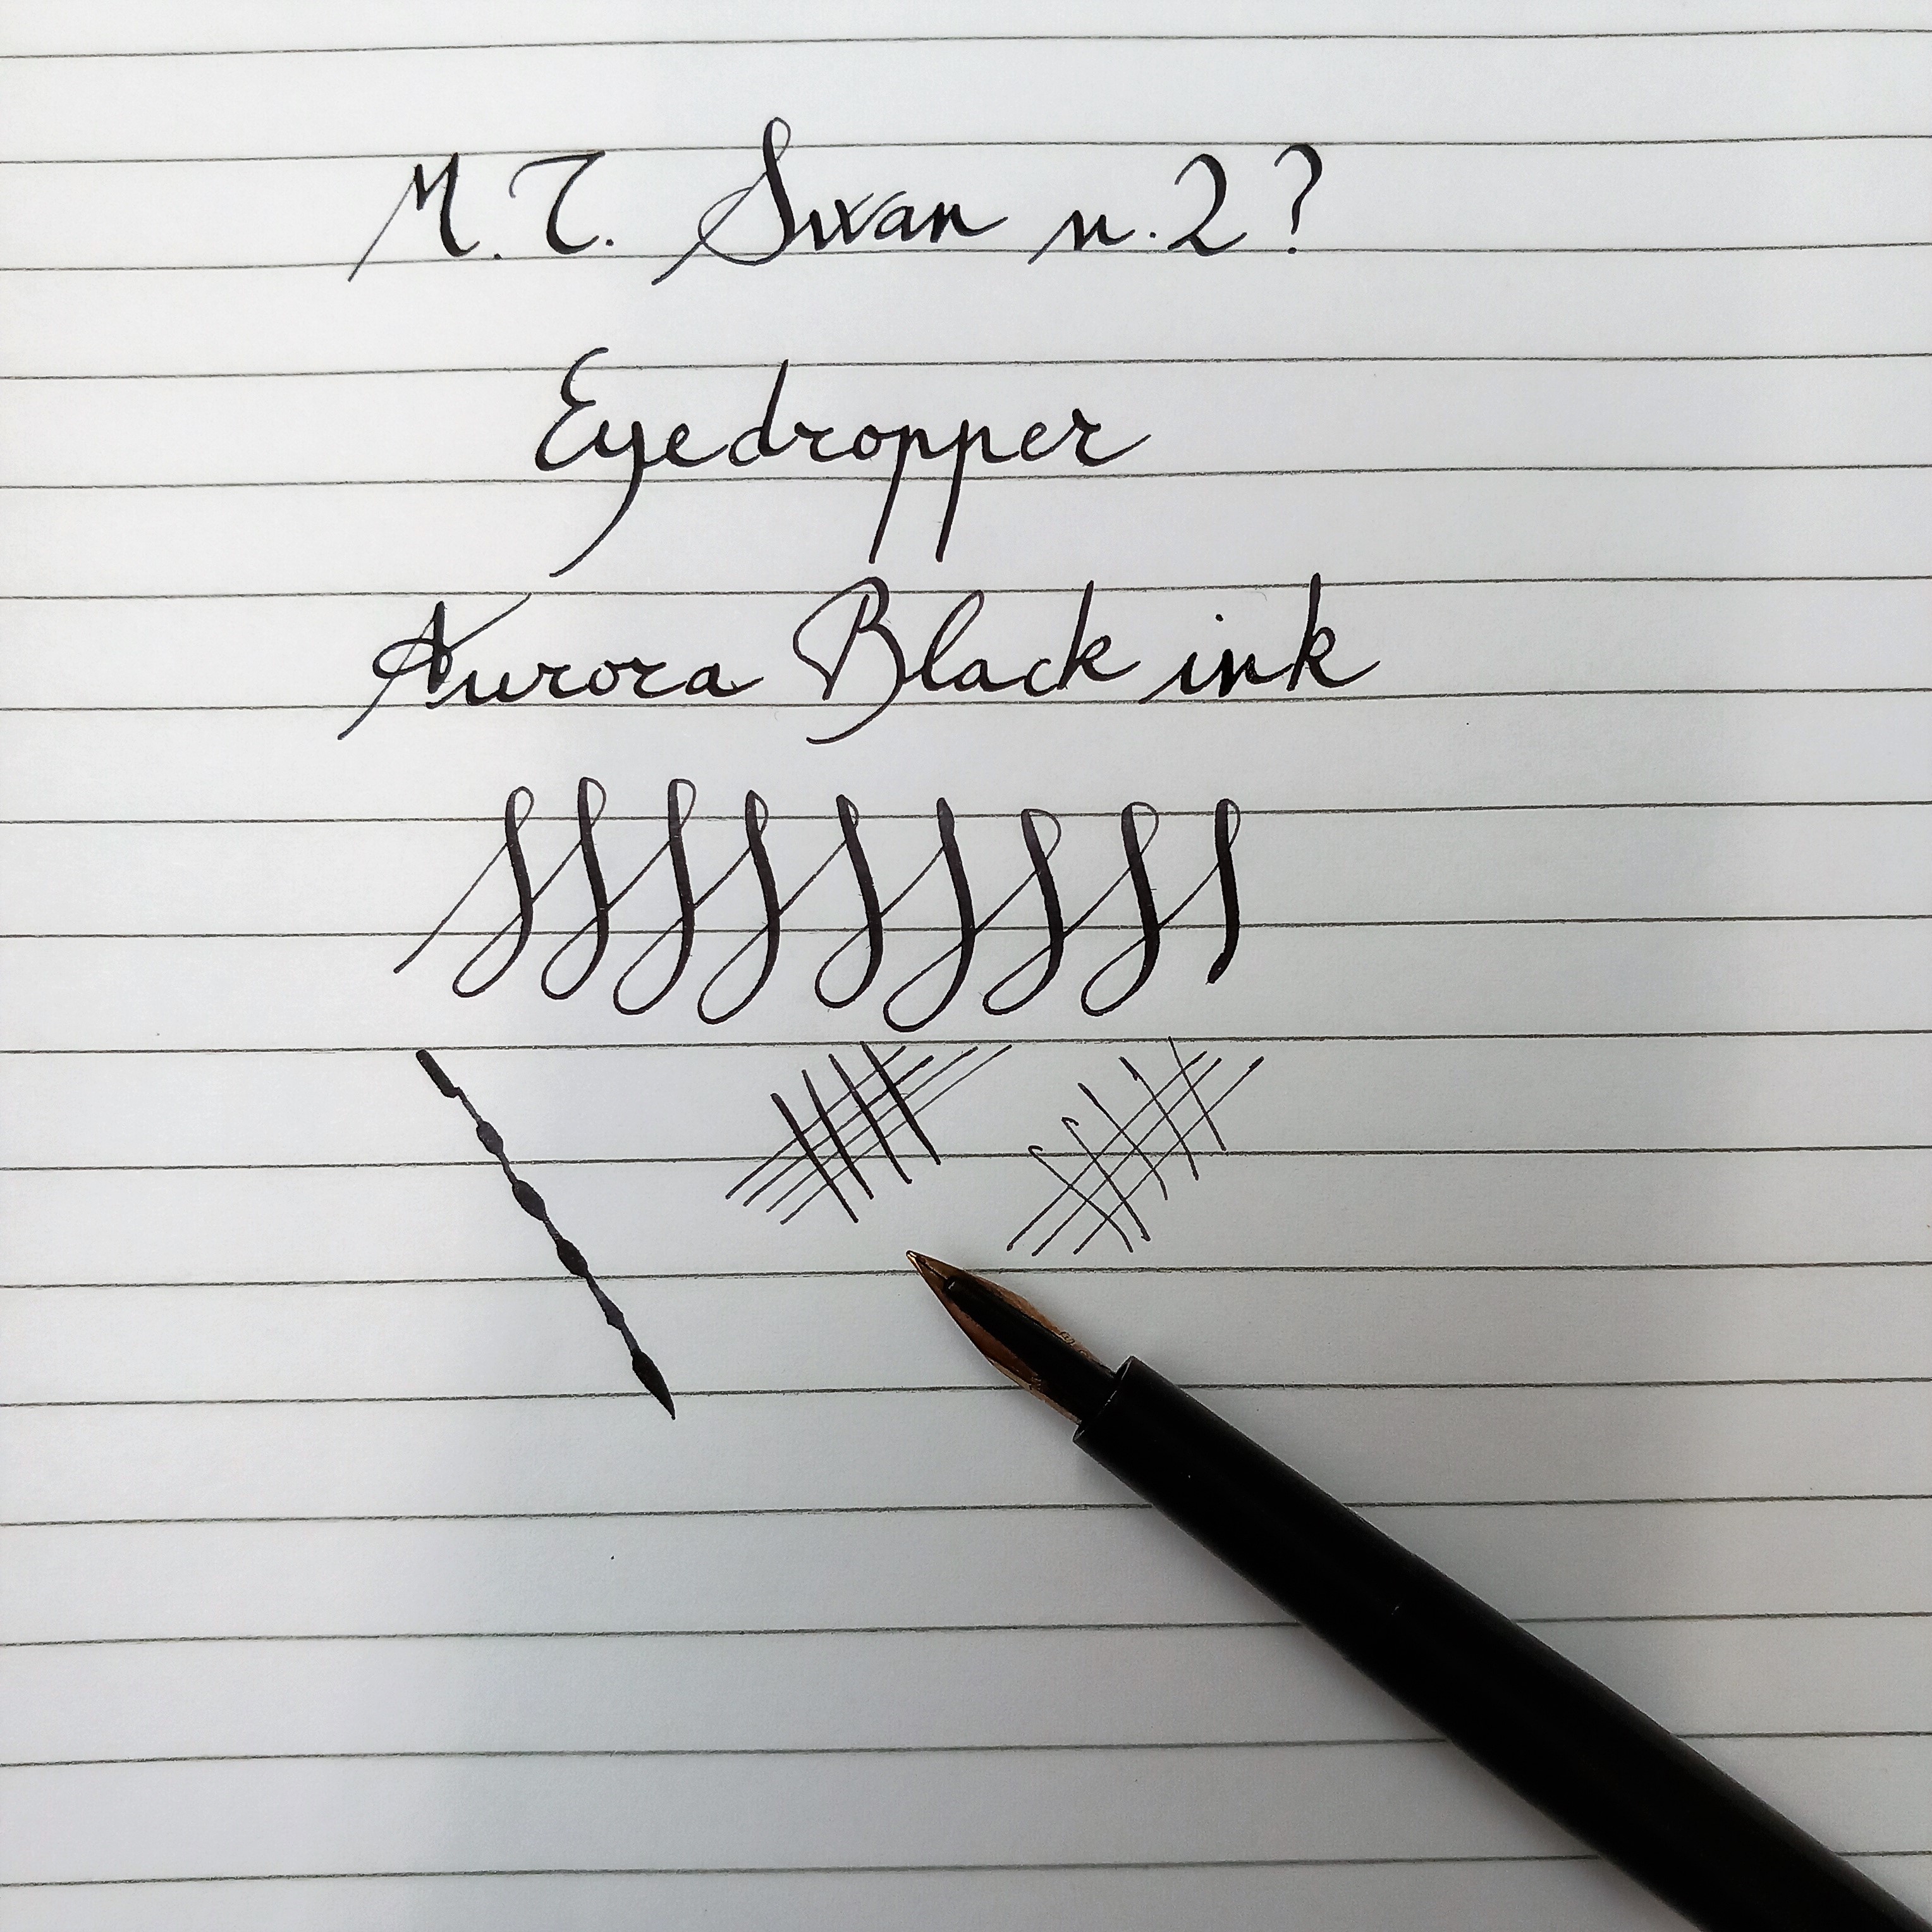 M.T. Swan n.2?
Eyedropper
Aurora Black ink